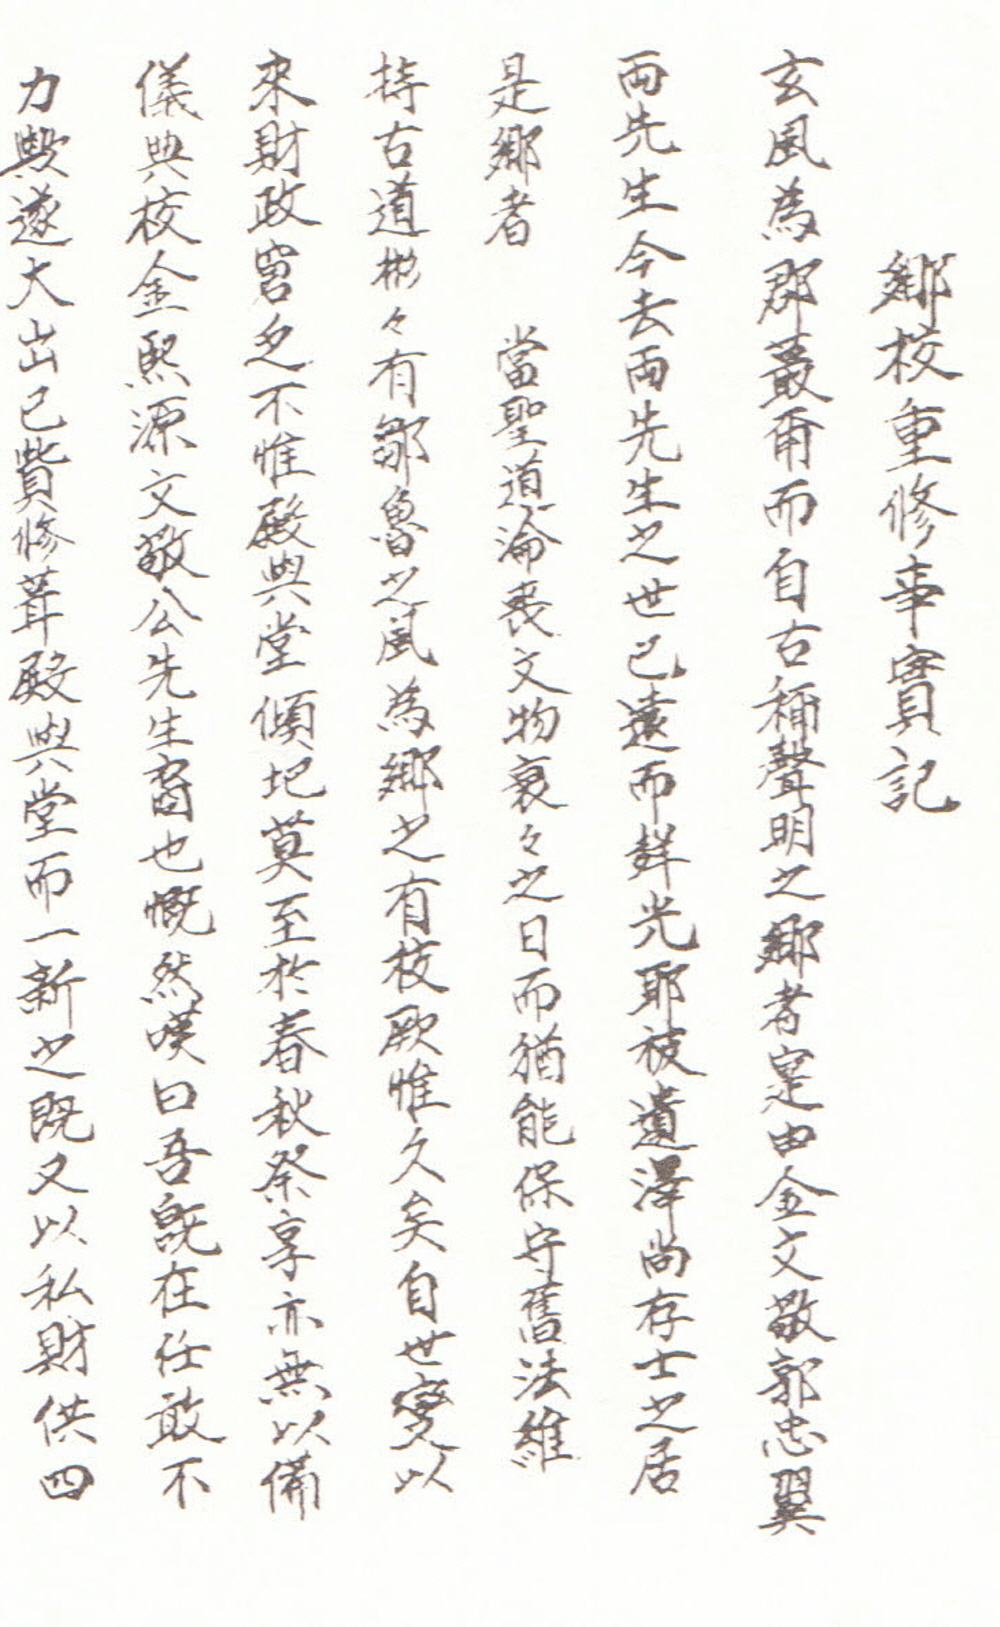 鄉校重修事實記
玄風為郡蕞爾而自古稱聲明之鄉者寔由金文敬郭忠翼
兩先生今去兩先生之世已遠而耿光耶被遺澤尚存士之居
是鄉者 當聖道淪喪文物衰々之日而猶能保守舊法維
持古道彬々有鄒魯之風為鄉之有校厥惟久矣自世變以
來財政窘乏不惟殿與堂傾圮莫至於春秋祭享亦無以備
儀典校金熙源文敬公先生裔也慨然嘆曰吾旣在任敢不
力歟遂大出己貲修葺殿與堂而一新之既又以私財供四